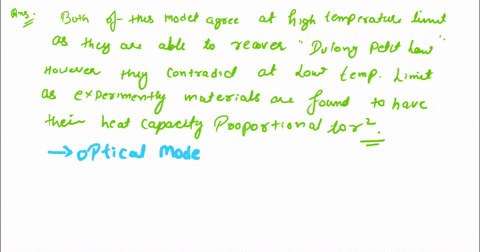 Ans. Both of this model agree at high temperature limit
as they are able to recover "Dulong Petit Law"
However they contradict at Low temp. Limit
as experimently materials are found to have
their heat capacity Proportional to r².
→ OPtical Mode